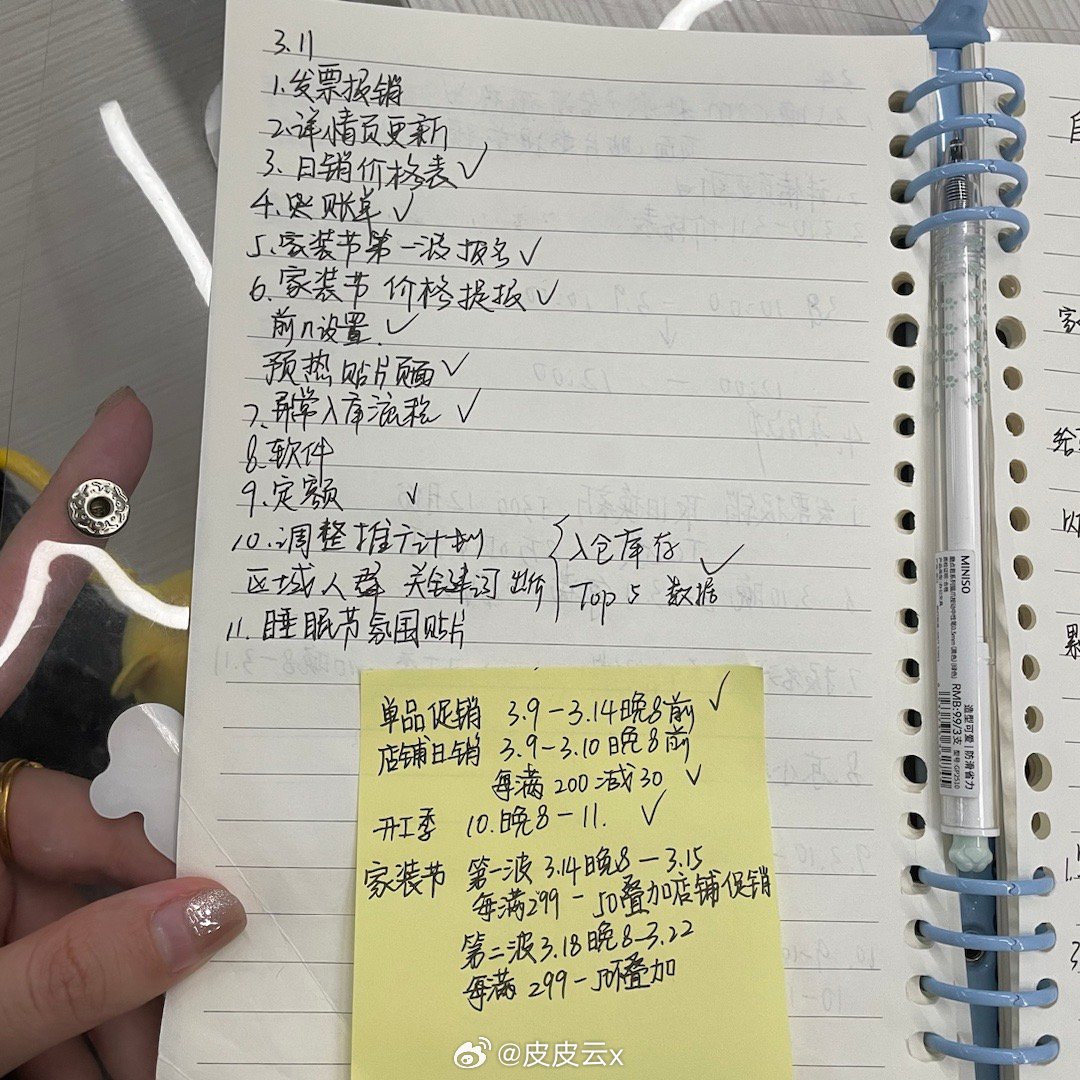 3.11
1.发票报销
2.详情页更新
3.日销价格表✓
4.账单✓
5.家装节第一波报名✓
6.家装节价格提报✓
前n设置✓
预热贴片页面✓
7.异常入库流程✓
8.软件
9.定额✓
10.调整推广计划
区域人群 关键词出价
入仓库存
Top 5 数据✓
11.睡眠节氛围贴片
单品促销 3.9-3.14晚8前✓
店铺日销 3.9-3.10晚8前
每满200减30✓
开工季 10.晚8-11.✓
家装节 第一波 3.14晚8-3.15
每满299-50叠加店铺促销
第二波3.18晚8-3.22
每满299-50叠加
MINISO
RMB:9.9/3支
型号:GP2510
造型可爱|防滑省力
@皮皮云x